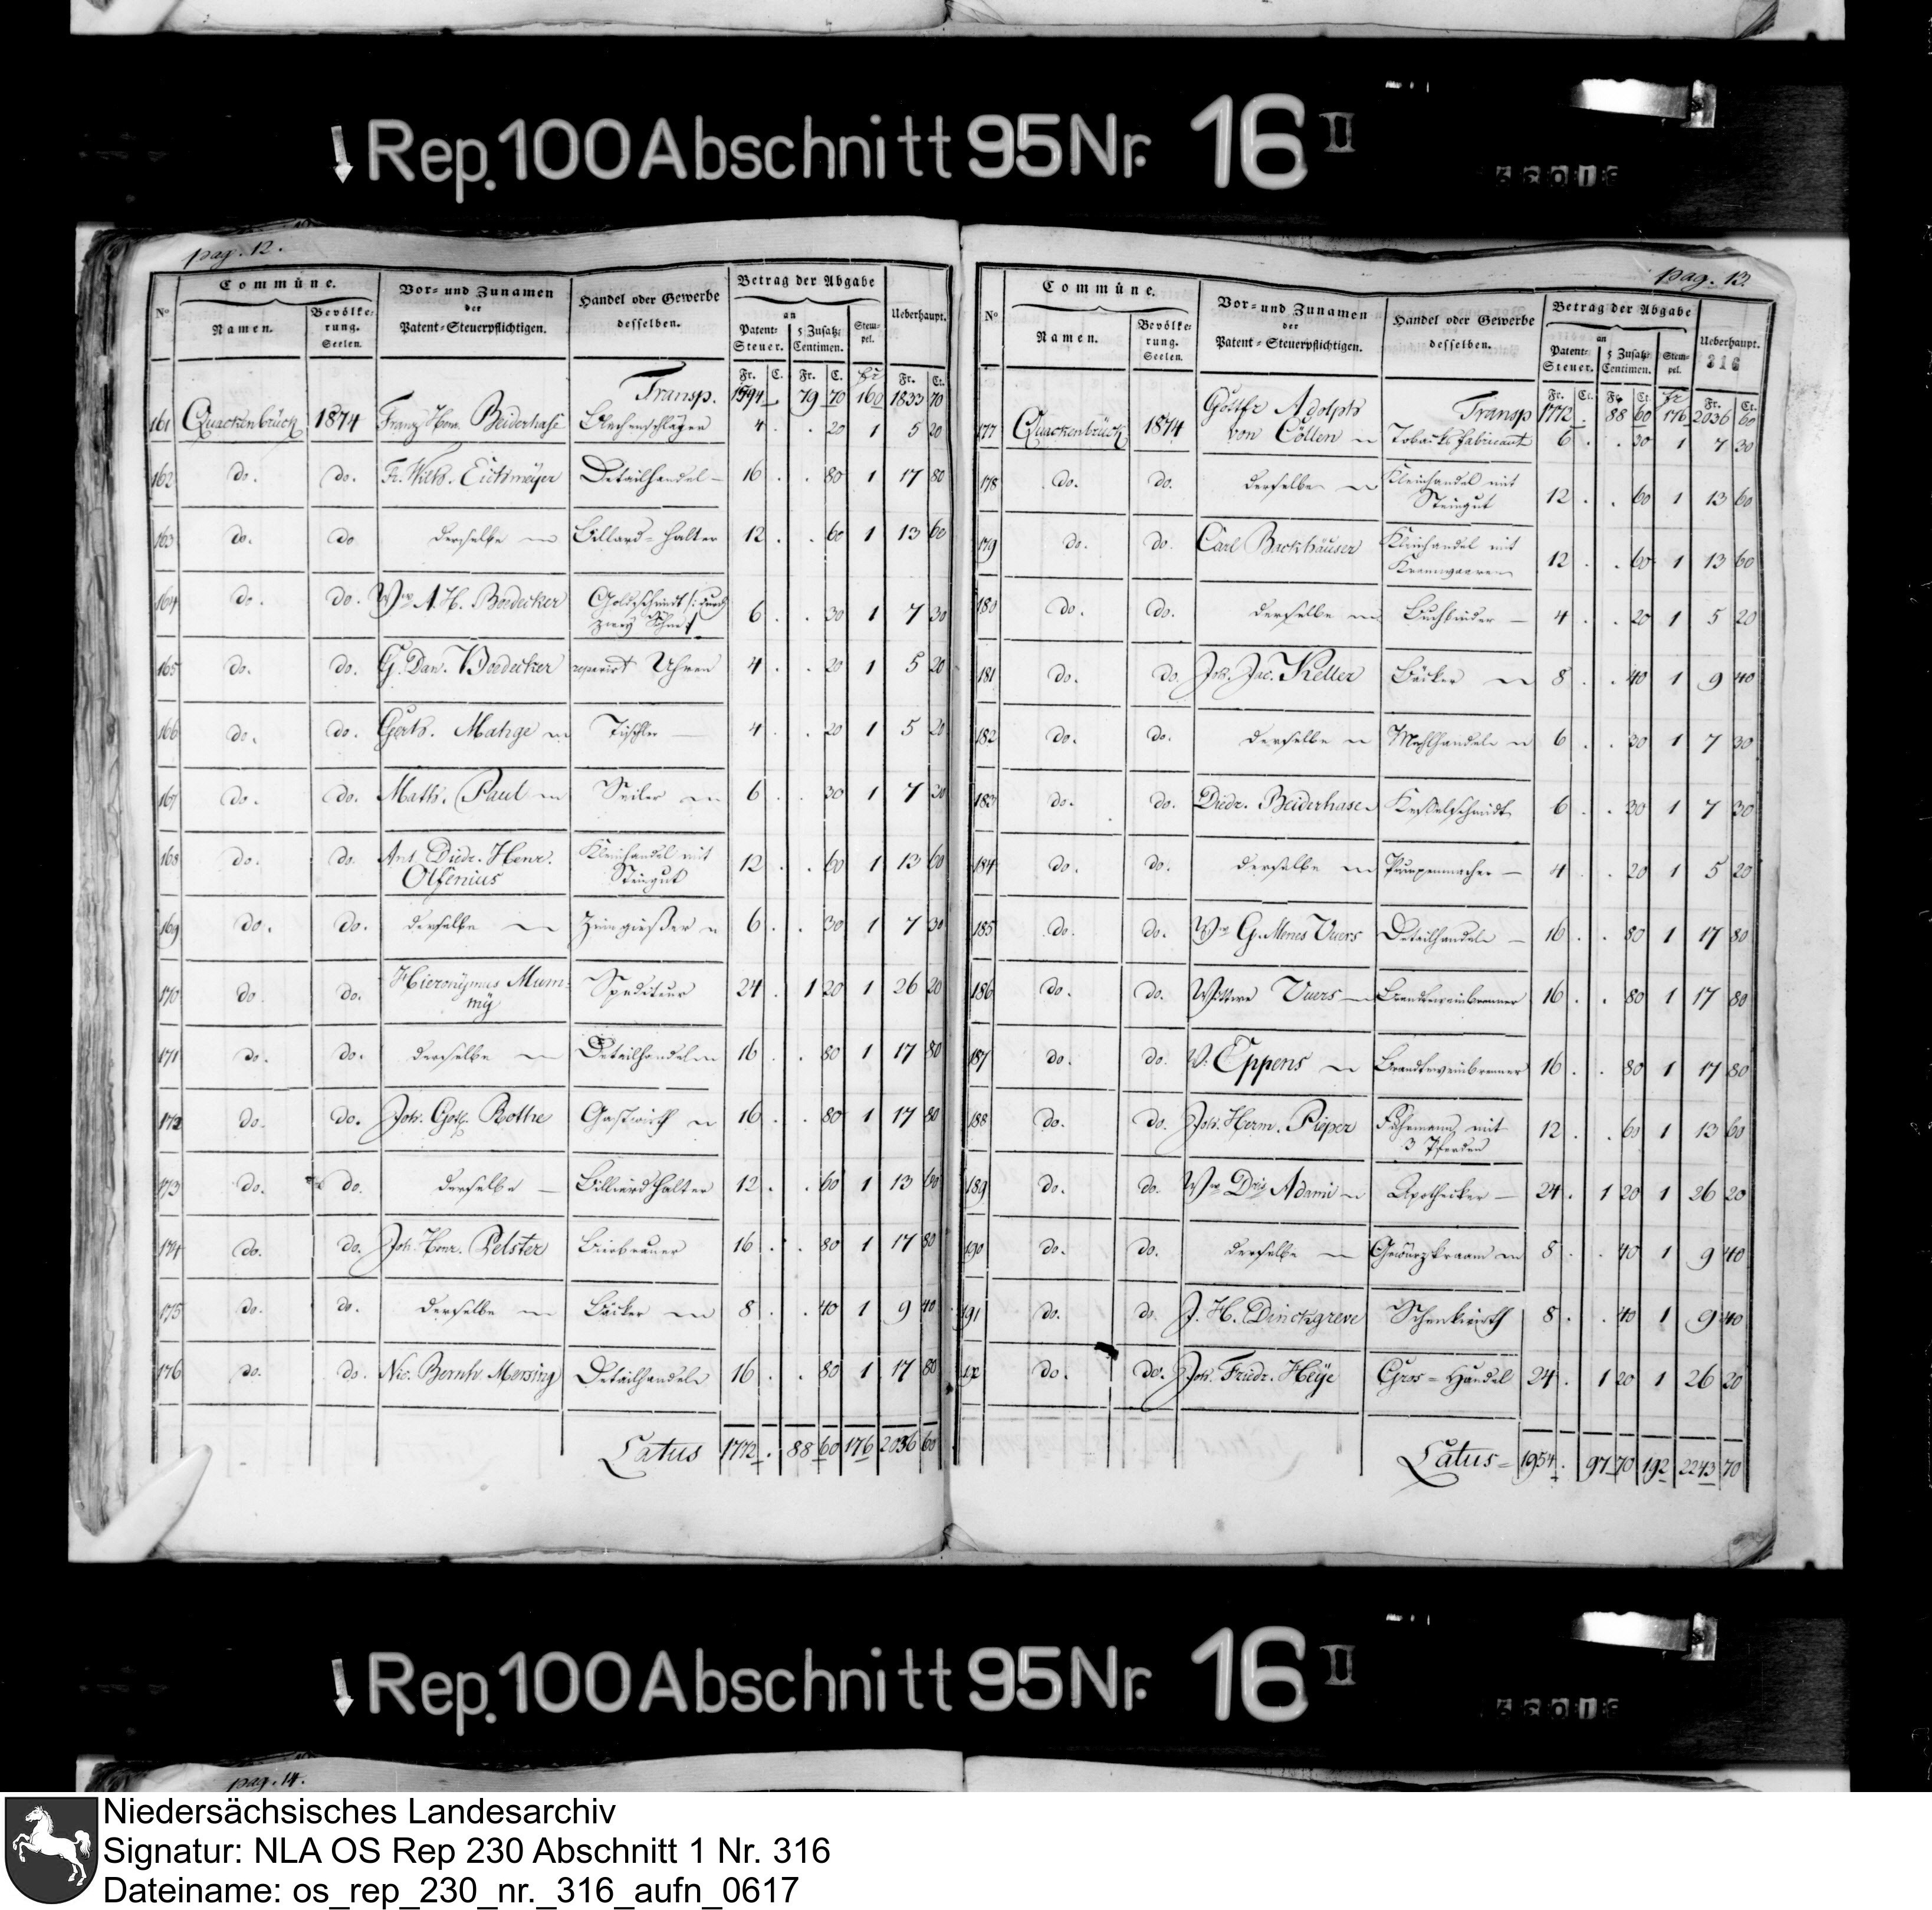 Rep. 100 Abschnitt 95 Nr. 16 II
pag. 12.
No
Commüne.
Namen.
Bevölke-
rung.
Seelen.
Vor- und Zunamen
der
Patent-Steuerpflichtigen.
Handel oder Gewerbe
desselben.
Betrag der Abgabe
an
Patent-
Steuer.
5 Zusatz
Centimen.
Stem-
pel.
Ueberhaupt.
Fr. C. Fr. C. Fr Fr. Ct.
Transp. 1594 . 79 70 160 1833 70
161 Quackenbrück 1874 Franz Henr. Beiderhase Blechenschläger 4 . . 20 1 5 20
162 do. do. Fr. Wilh. Eickmeyer Detailhandel 16 . . 80 1 17 80
163 do. do derselbe Billard-halter 12 . . 60 1 13 60
164 do. do. Wwe A. H. Boedecker Goldschmidt /: durch
zwey Söhne :/ 6 . . 30 1 7 30
165 do. do. G. Dan. Boedecker reparirt Uhren 4 . . 20 1 5 20
166 do. do. Gerh. Matige Tischler 4 . . 20 1 5 20
167 do. do. Math. Paul Seiler 6 . . 30 1 7 30
168 do. do. Ant. Diedr. Henr.
Olfenius Kleinhandel mit
Steingut 12 . . 60 1 13 60
169 do. do. derselbe Zinngießer 6 . . 30 1 7 30
170 do. do. Hieronÿmus Mum-
mÿ Spediteur 24 . 1 20 1 26 20
171 do. do. derselbe Detailhandel 16 . . 80 1 17 80
172 do. do. Joh. Gotf. Rothe Gastwirth 16 . . 80 1 17 80
173 do. do. derselbe Billiard halter 12 . . 60 1 13 60
174 do. do. Joh. Henr. Pelster Bierbrauer 16 . . 80 1 17 80
175 do. do. derselbe Bäcker 8 . . 40 1 9 40
176 do. do. Nic. Bernh. Mersing Detailhandel 16 . . 80 1 17 80
Latus 1772 . 88 60 176 2036 60
pag. 13.
No
Commüne.
Namen.
Bevölke-
rung.
Seelen.
Vor- und Zunamen
der
Patent-Steuerpflichtigen.
Handel oder Gewerbe
desselben.
Betrag der Abgabe
an
Patent-
Steuer.
5 Zusatz
Centimen.
Stem-
pel.
Ueberhaupt.
316
Fr. Ct. Fr. Ct. Fr Fr. Ct.
Transp 1772 . 88 60 176 2036 60
177 Quackenbrück 1874 Gottfr Adolph
von Cölln Tobacks fabricant 6 . . 30 1 7 30
178 do. do. derselbe Kleinhandel mit
Steingut 12 . . 60 1 13 60
179 do. do. Carl Backhäuser Kleinhandel mit
Kramwaaren 12 . . 60 1 13 60
180 do. do. derselbe Buchbinder 4 . . 20 1 5 20
181 do. do. Joh. Jac. Keller Bäcker 8 . . 40 1 9 40
182 do. do. derselbe Mehlhandel 6 . . 30 1 7 30
183 do. do. Diedr. Beiderhase Kesselschmidt 6 . . 30 1 7 30
184 do. do. derselbe Pumpenmacher 4 . . 20 1 5 20
185 do. do. Wwe G. Menes Vuers Detailhandel 16 . . 80 1 17 80
186 do. do. Wittwe Vuers Brandtweinbrenner 16 . . 80 1 17 80
187 do. do. W. Eppens Brandtweinbrenner 16 . . 80 1 17 80
188 do. do. Joh. Herm. Pieper Fuhrmann mit
3 Pferden 12 . . 60 1 13 60
189 do. do. Wwe Dris Adami Apotheker 24 . 1 20 1 26 20
190 do. do. derselbe Gewürzkraam 8 . . 40 1 9 40
191 do. do. J. H. Dinckgreve Schenkwirth 8 . . 40 1 9 40
192 do. do. Joh. Friedr. Heÿe Gros-Handel 24 . 1 20 1 26 20
Latus 1954 . 97 70 192 2243 70
Rep. 100 Abschnitt 95 Nr. 16 II
pag. 14.
Niedersächsisches Landesarchiv
Signatur: NLA OS Rep 230 Abschnitt 1 Nr. 316
Dateiname: os_rep_230_nr._316_aufn_0617